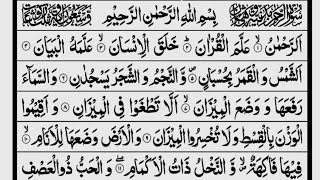 بِسْمِ اللهِ الرَّحْمٰنِ الرَّحِيْمِ
اَلرَّحْمٰنُ ۙ﴿۱﴾ عَلَّمَ الْقُرْاٰنَ ؕ﴿۲﴾ خَلَقَ الْاِنْسَانَ ۙ﴿۳﴾ عَلَّمَهُ الْبَيَانَ ﴿۴﴾
اَلشَّمْسُ وَ الْقَمَرُ بِحُسْبَانٍ ﴿۵﴾ وَّ النَّجْمُ وَ الشَّجَرُ يَسْجُدٰنِ ﴿۶﴾ وَ السَّمَآءَ
رَفَعَهَا وَ وَضَعَ الْمِيْزَانَ ۙ﴿۷﴾ اَلَّا تَطْغَوْا فِي الْمِيْزَانِ ﴿۸﴾ وَ اَقِيْمُوا
الْوَزْنَ بِالْقِسْطِ وَ لَا تُخْسِرُوا الْمِيْزَانَ ﴿۹﴾ وَ الْاَرْضَ وَضَعَهَا لِلْاَنَامِ ۙ﴿۱۰﴾
فِيْهَا فَاكِهَةٌ ۪ۙ وَّ النَّخْلُ ذَاتُ الْاَكْمَامِ ۖ﴿۱۱﴾ وَ الْحَبُّ ذُو الْعَصْفِ